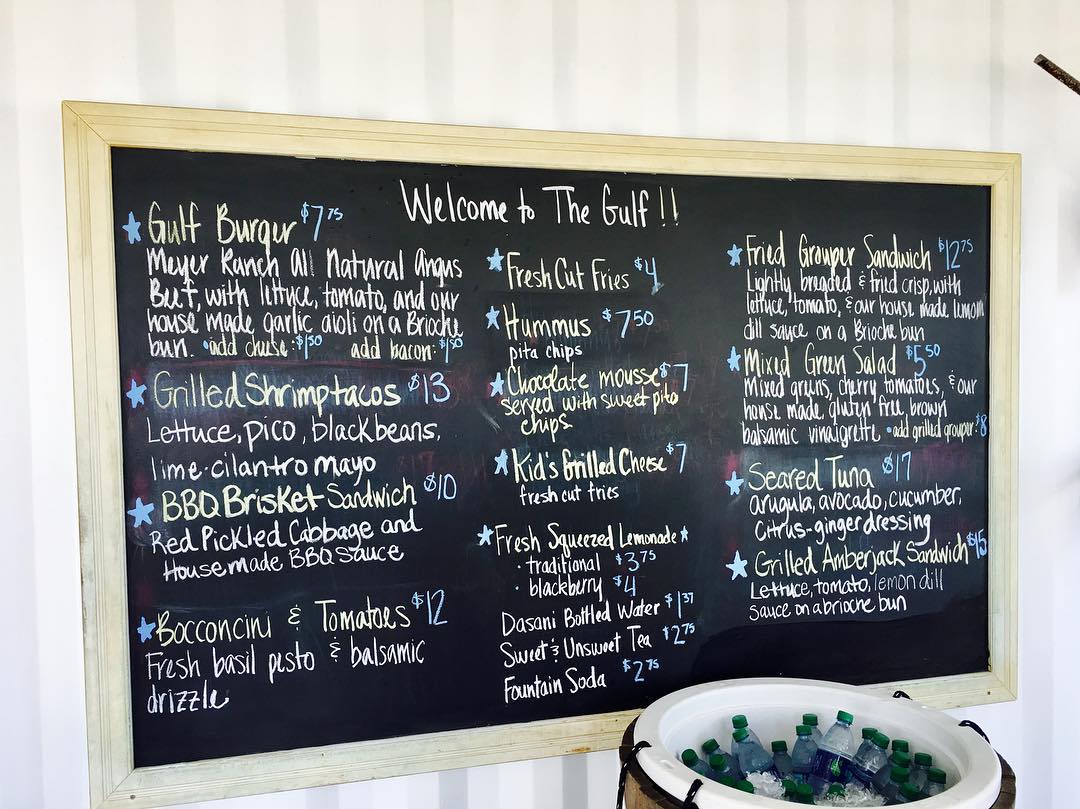 Welcome to The Gulf !!
Gulf Burger $7.75
Meyer Ranch All Natural Angus
Beef, with lettuce, tomato, and our
house made garlic aioli on a Brioche
bun. • add cheese: $1.50 add bacon: $1.50
Grilled Shrimp tacos $13
Lettuce, pico, black beans,
lime-cilantro mayo
BBQ Brisket Sandwich $10
Red Pickled Cabbage and
Housemade BBQ Sauce
Bocconcini & Tomatoes $12
Fresh basil pesto & balsamic
drizzle
Fresh Cut Fries $4
Hummus $7.50
pita chips
Chocolate mousse $7
served with sweet pita
chips
Kid's Grilled Cheese $7
fresh cut fries
Fresh Squeezed Lemonade
• traditional $3.75
• blackberry $4
Dasani Bottled Water $1.37
Sweet & Unsweet Tea $2.75
Fountain Soda $2.75
Fried Grouper Sandwich $12.75
Lightly breaded & fried crisp, with
lettuce, tomato, & our house made lemon
dill sauce on a Brioche bun
Mixed Green Salad $5.50
Mixed greens, cherry tomatoes, & our
house made, gluten free, brown
balsamic vinaigrette • add grilled grouper: $8
Seared Tuna $17
arugula, avocado, cucumber,
Citrus-ginger dressing
Grilled Amberjack Sandwich $15
Lettuce, tomato, lemon dill
sauce on a brioche bun